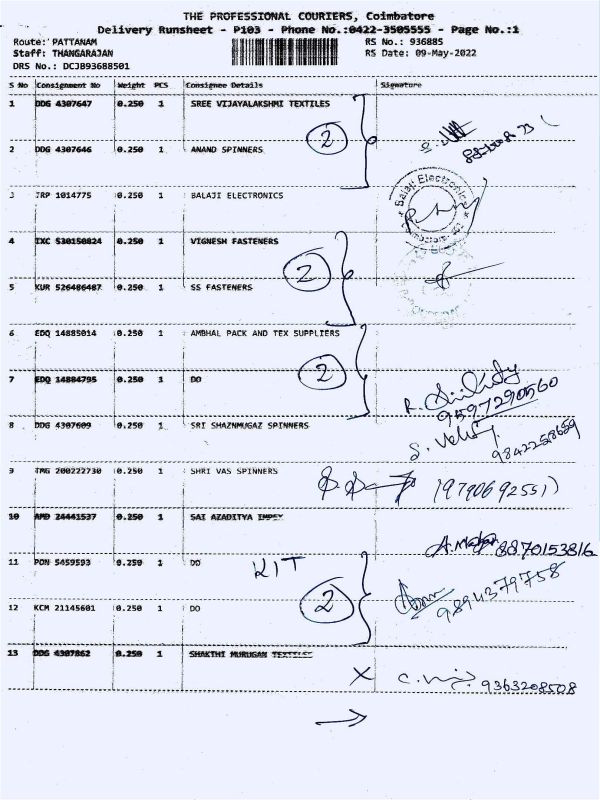 THE PROFESSIONAL COURIERS, Coimbatore
Delivery Runsheet - P103 - Phone No.:0422-3505555 - Page No.:1
Route: PATTANAM RS No.: 936885
Staff: THANGARAJAN RS Date: 09-May-2022
DRS No.: DCJB93688501
S No Consignment No Weight PCS Consignee Details Signature
1 DDG 4307647 0.250 1 SREE VIJAYALAKSHMI TEXTILES
2
2 DDG 4307646 0.250 1 ANAND SPINNERS
3 TRP 1014775 0.250 1 BALAJI ELECTRONICS
Balaji Electronics
4 IXC 530150824 0.250 1 VIGNESH FASTENERS
2
5 KUR 526486487 0.250 1 SS FASTENERS
6 EDQ 14885014 0.250 1 AMBHAL PACK AND TEX SUPPLIERS
2
7 EDQ 14884795 0.250 3 DO
9597290560
8 DDG 4307609 0.250 1 SRI SHAZNMUGAZ SPINNERS
9842258659
9 TMG 200222730 0.250 1 SHRI VAS SPINNERS
(9790692551)
10 AMD 24441537 0.250 1 SAI AZADITYA IMPEX
8870153816
11 PON 5459593 0.250 1 DO
KIT
9894379758
2
12 KCM 21145601 0.250 1 DO
13 DDG 4307862 0.250 1 SHAKTHI MURUGAN TEXTILES
9363208508